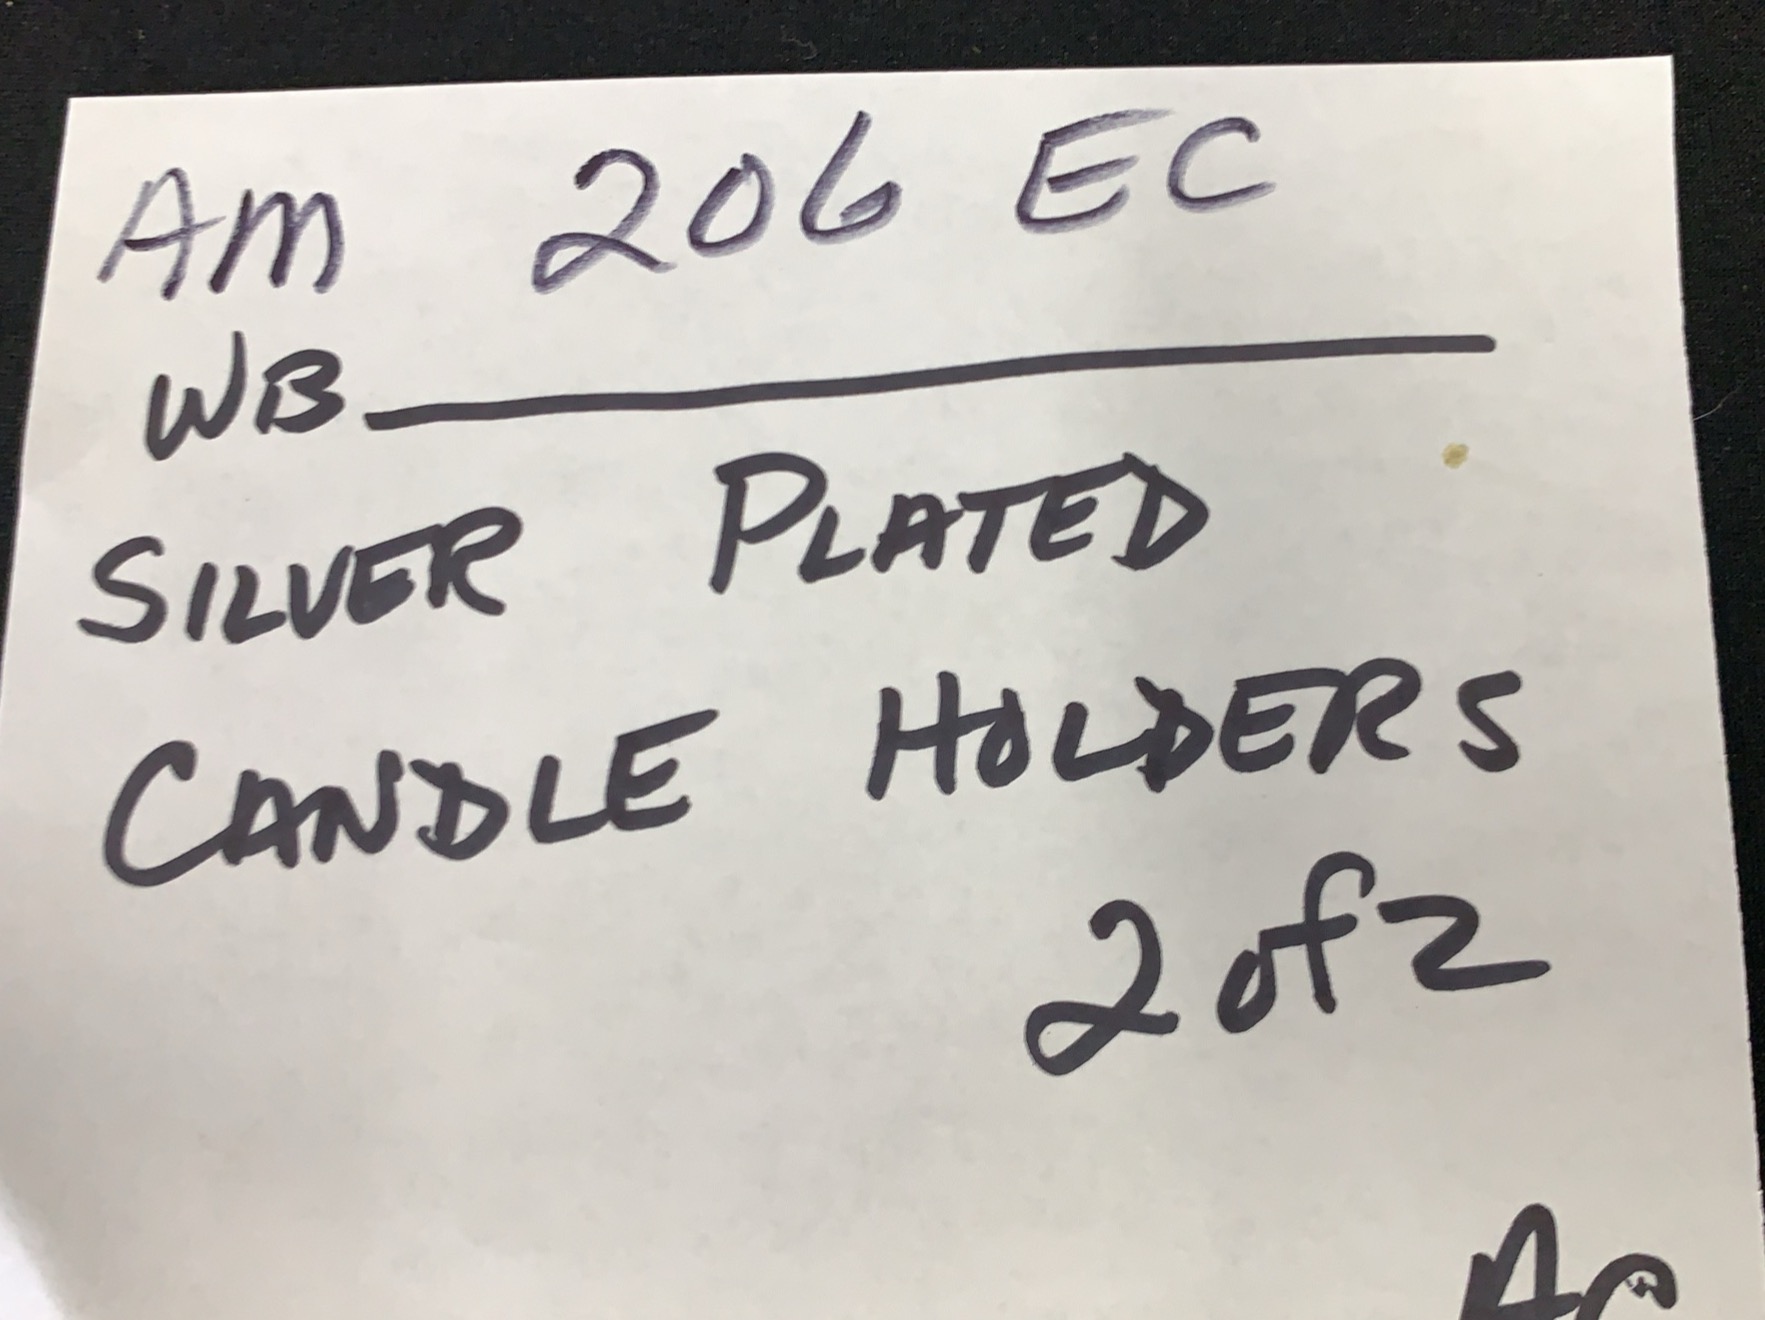 AM 206 EC
WB
SILVER PLATED
CANDLE HOLDERS
2 of 2